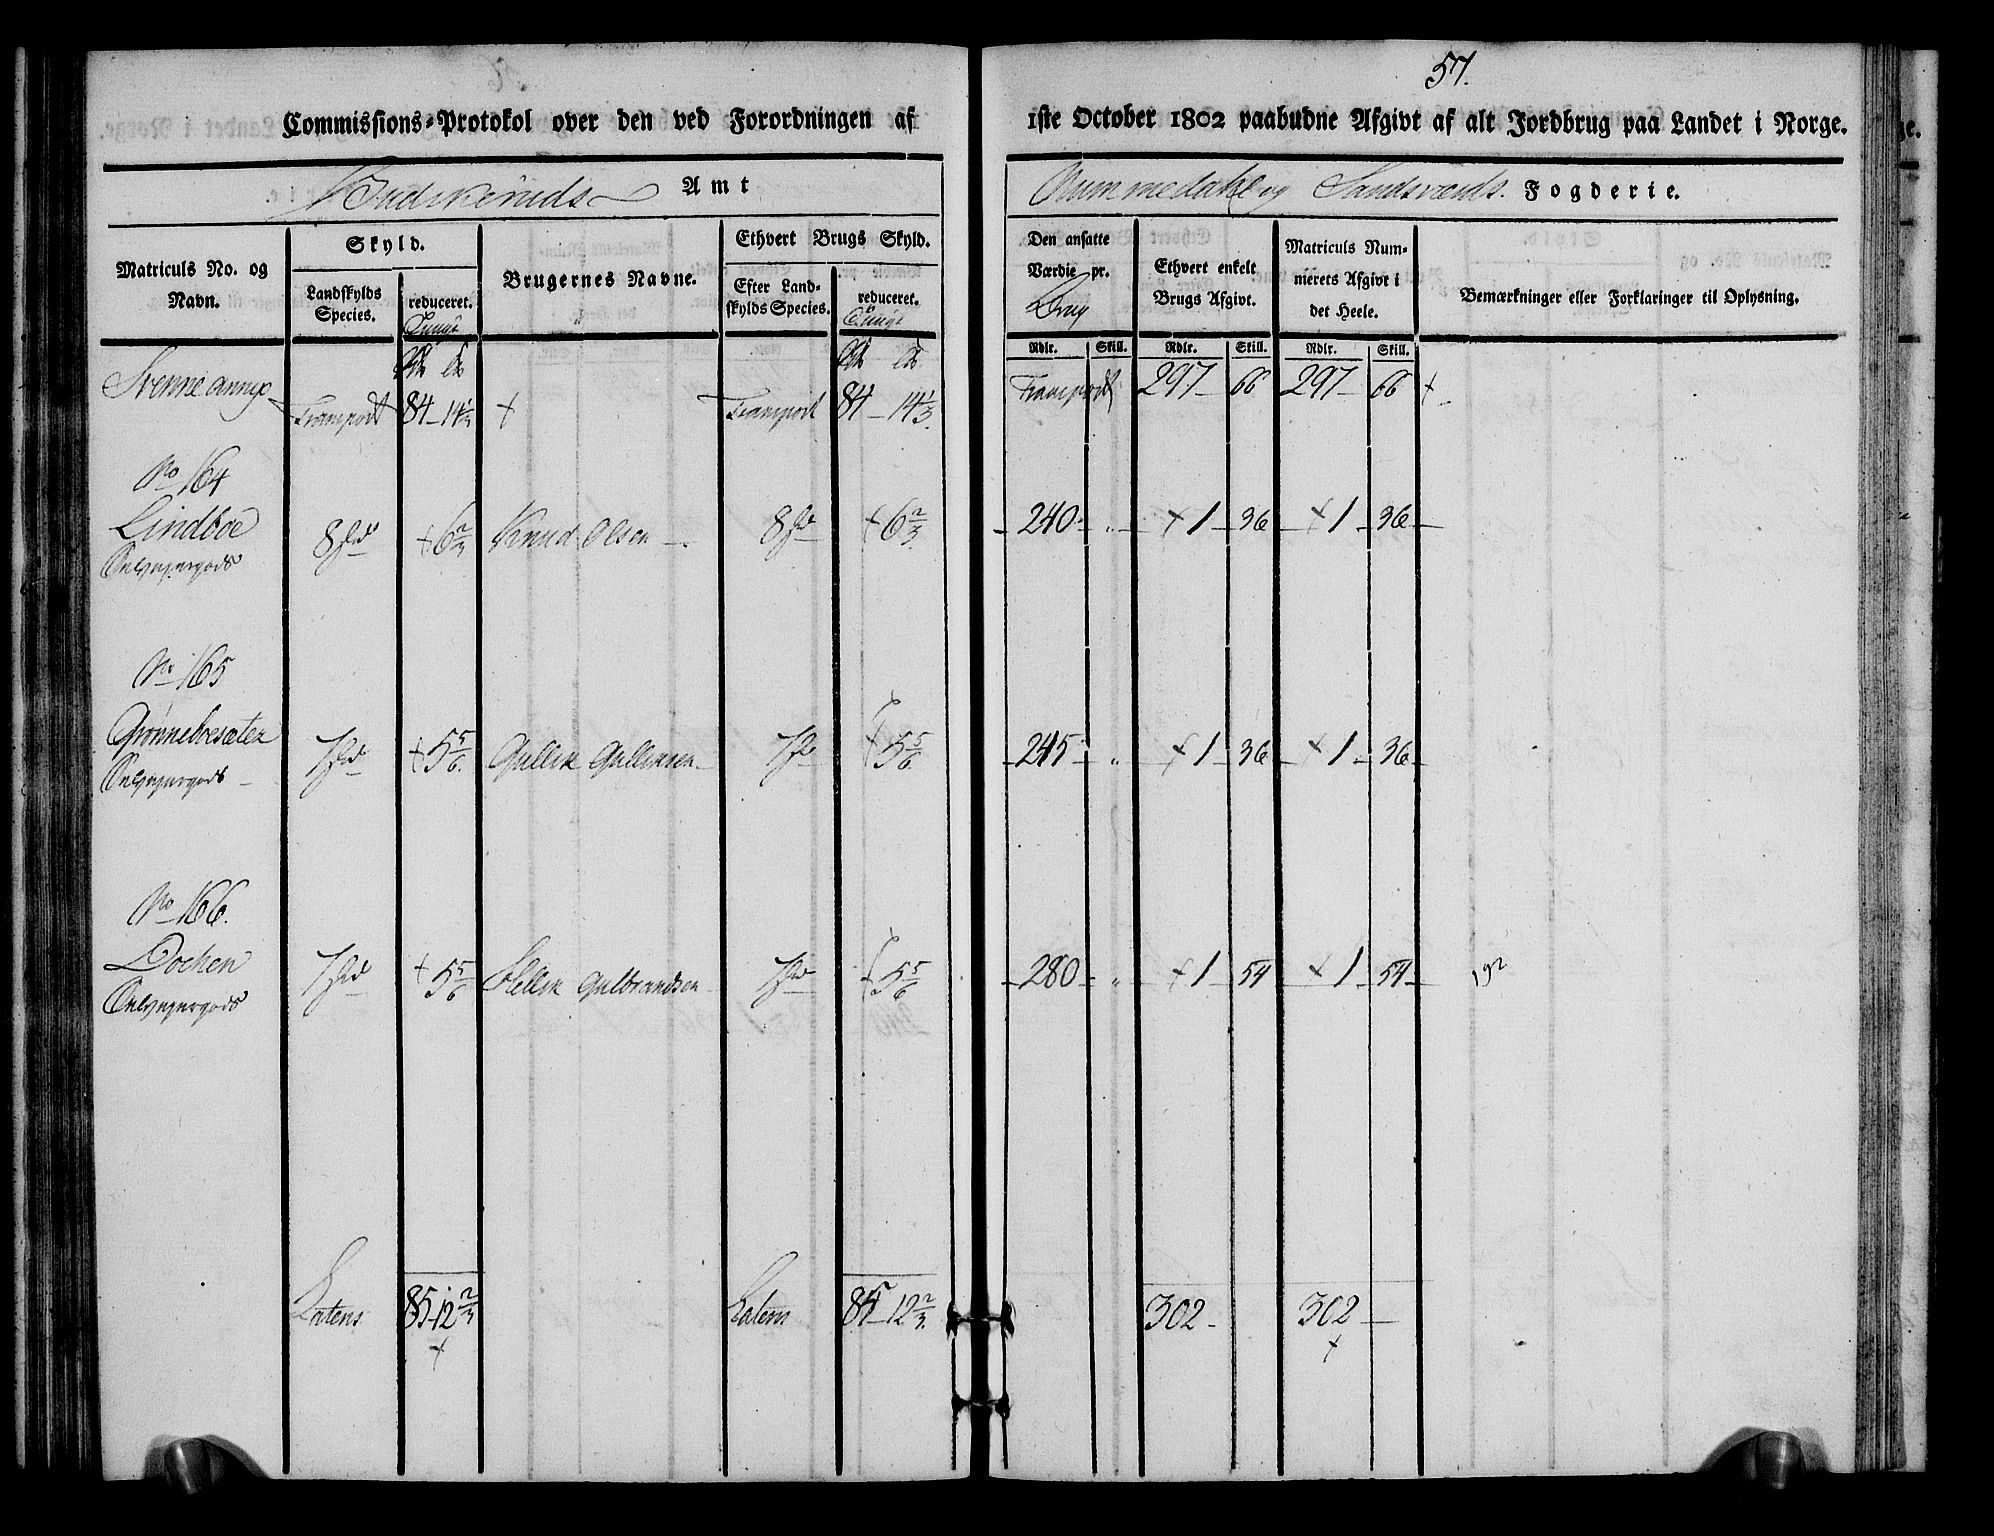 57.
Commissions-Protokol over den ved Forordningen af 1ste October 1802 paabudne Afgivt af alt Jordbrug paa Landet i Norge.
Buskeruds Amt
Nummedahl og Sandsværds Fogderie.
Matriculs No. og Navn.
Skyld.
Landskylds Species.
reduceret. Tunge
Brugernes Navne.
Ethvert Brugs Skyld.
Efter Landskylds Species.
reduceret. Tunge
Den ansatte Værdie pr. Brug
Ethvert enkelt Brugs Afgivt.
Matriculs Nummerets Afgivt i det Heele.
Bemærkninger eller Forklaringer til Oplysning.
Rdlr. Skill. Rdlr. Skill. Rdlr. Skill.
Svenne annex
Transport 84 - 14 1/3 + Transport 84 - 14 1/3. Transport 297 - 66 297 - 66 +
No 164
Lindboe 8 + 6 2/3 Knud Olsen 8 + 6 2/3. 240 - " + 1 - 36 + 1 - 36
Selveyergods
No 165
Grønneboesæter 7 + 5 5/6. Gullik Gulliksen 7 + 5 5/6 245 - " + 1 - 36 + 1 - 36
Selveyergods
No 166.
Dochen 7 + 5 5/6 Hellik Gulbrandsen 7 + 5 5/6 280 - " + 1 - 54 + 1 - 54 192
Selveyergods
Latens 85 - 12 2/3 Latens 85 - 12 2/3. 302 - 302 -
+ +